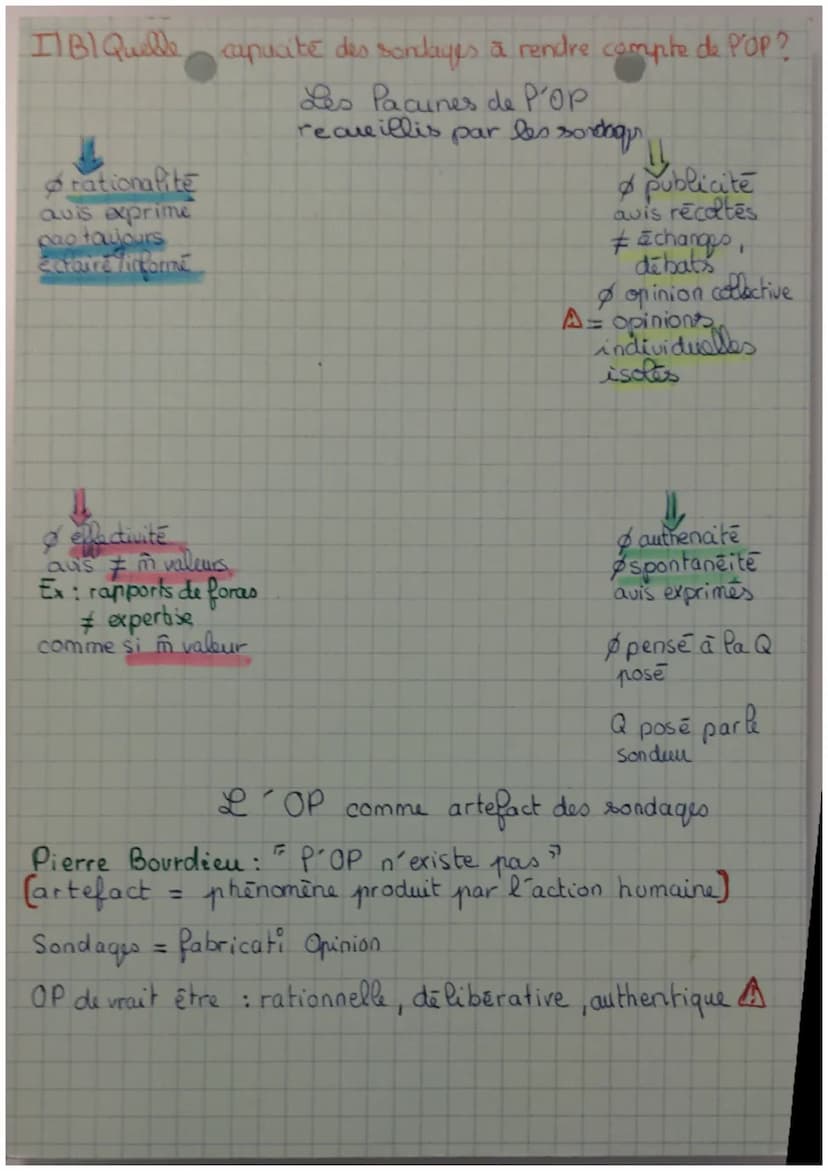 I|B| Quelle capacité des sondages à rendre compte de l'OP?
Les lacunes de l'OP
recueillis par les sondages
Ø rationalité
avis exprimé
pas toujours
éclairé/informé
Ø publicité
avis récoltés
≠ échanges,
débats
Ø opinion collective
⚠ = opinions
individuelles
isolés
Ø effectivité
avis ≠ m̂ valeurs
Ex : rapports de forces
≠ expertise
comme si m̂ valeur
Ø authencité
Ø spontanéité
avis exprimés
Ø pensé à la Q
posé
Q posé par le
sondeur
L'OP comme artefact des sondages
Pierre Bourdieu : "l'OP n'existe pas"
[artefact = phénomène produit par l'action humaine]
Sondages = fabricati° Opinion
OP devrait être : rationnelle, délibérative, authentique ⚠